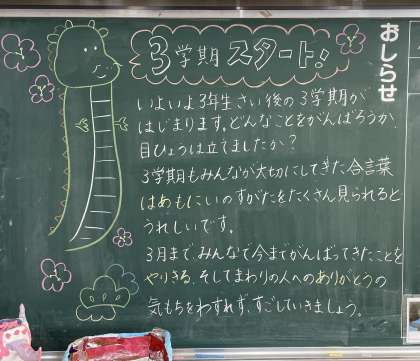 おしらせ
3学期スタート!
いよいよ3年生さい後の3学期が
はじまります。どんなことをがんばろうか、
目ひょうは立てましたか?
3学期もみんなが大切にしてきた合言葉
はあもにいのすがたをたくさん見られると
うれしいです。
3月まで、みんなで今までがんばってきたことを
やりきる、そしてまわりの人へのありがとうの
気もちをわすれず、すごしていきましょう。